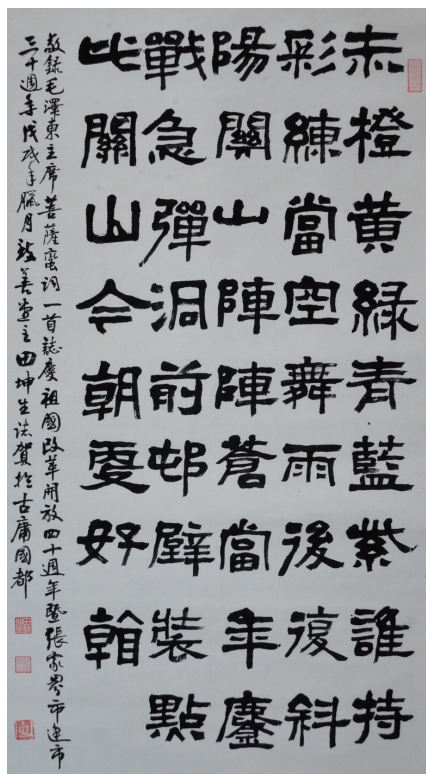 赤橙黄緑青藍紫誰持
彩練當空舞雨後復斜
陽關山陣陣蒼當年鏖
戰急彈洞前邨壁裝點
此關山今朝更好看
敬録毛澤東主席菩薩蠻詞一首誌慶祖國改革開放四十週年暨張家界市建市
三十週年戊戌年臘月致善堂主田坤生誌賀於古庸國都